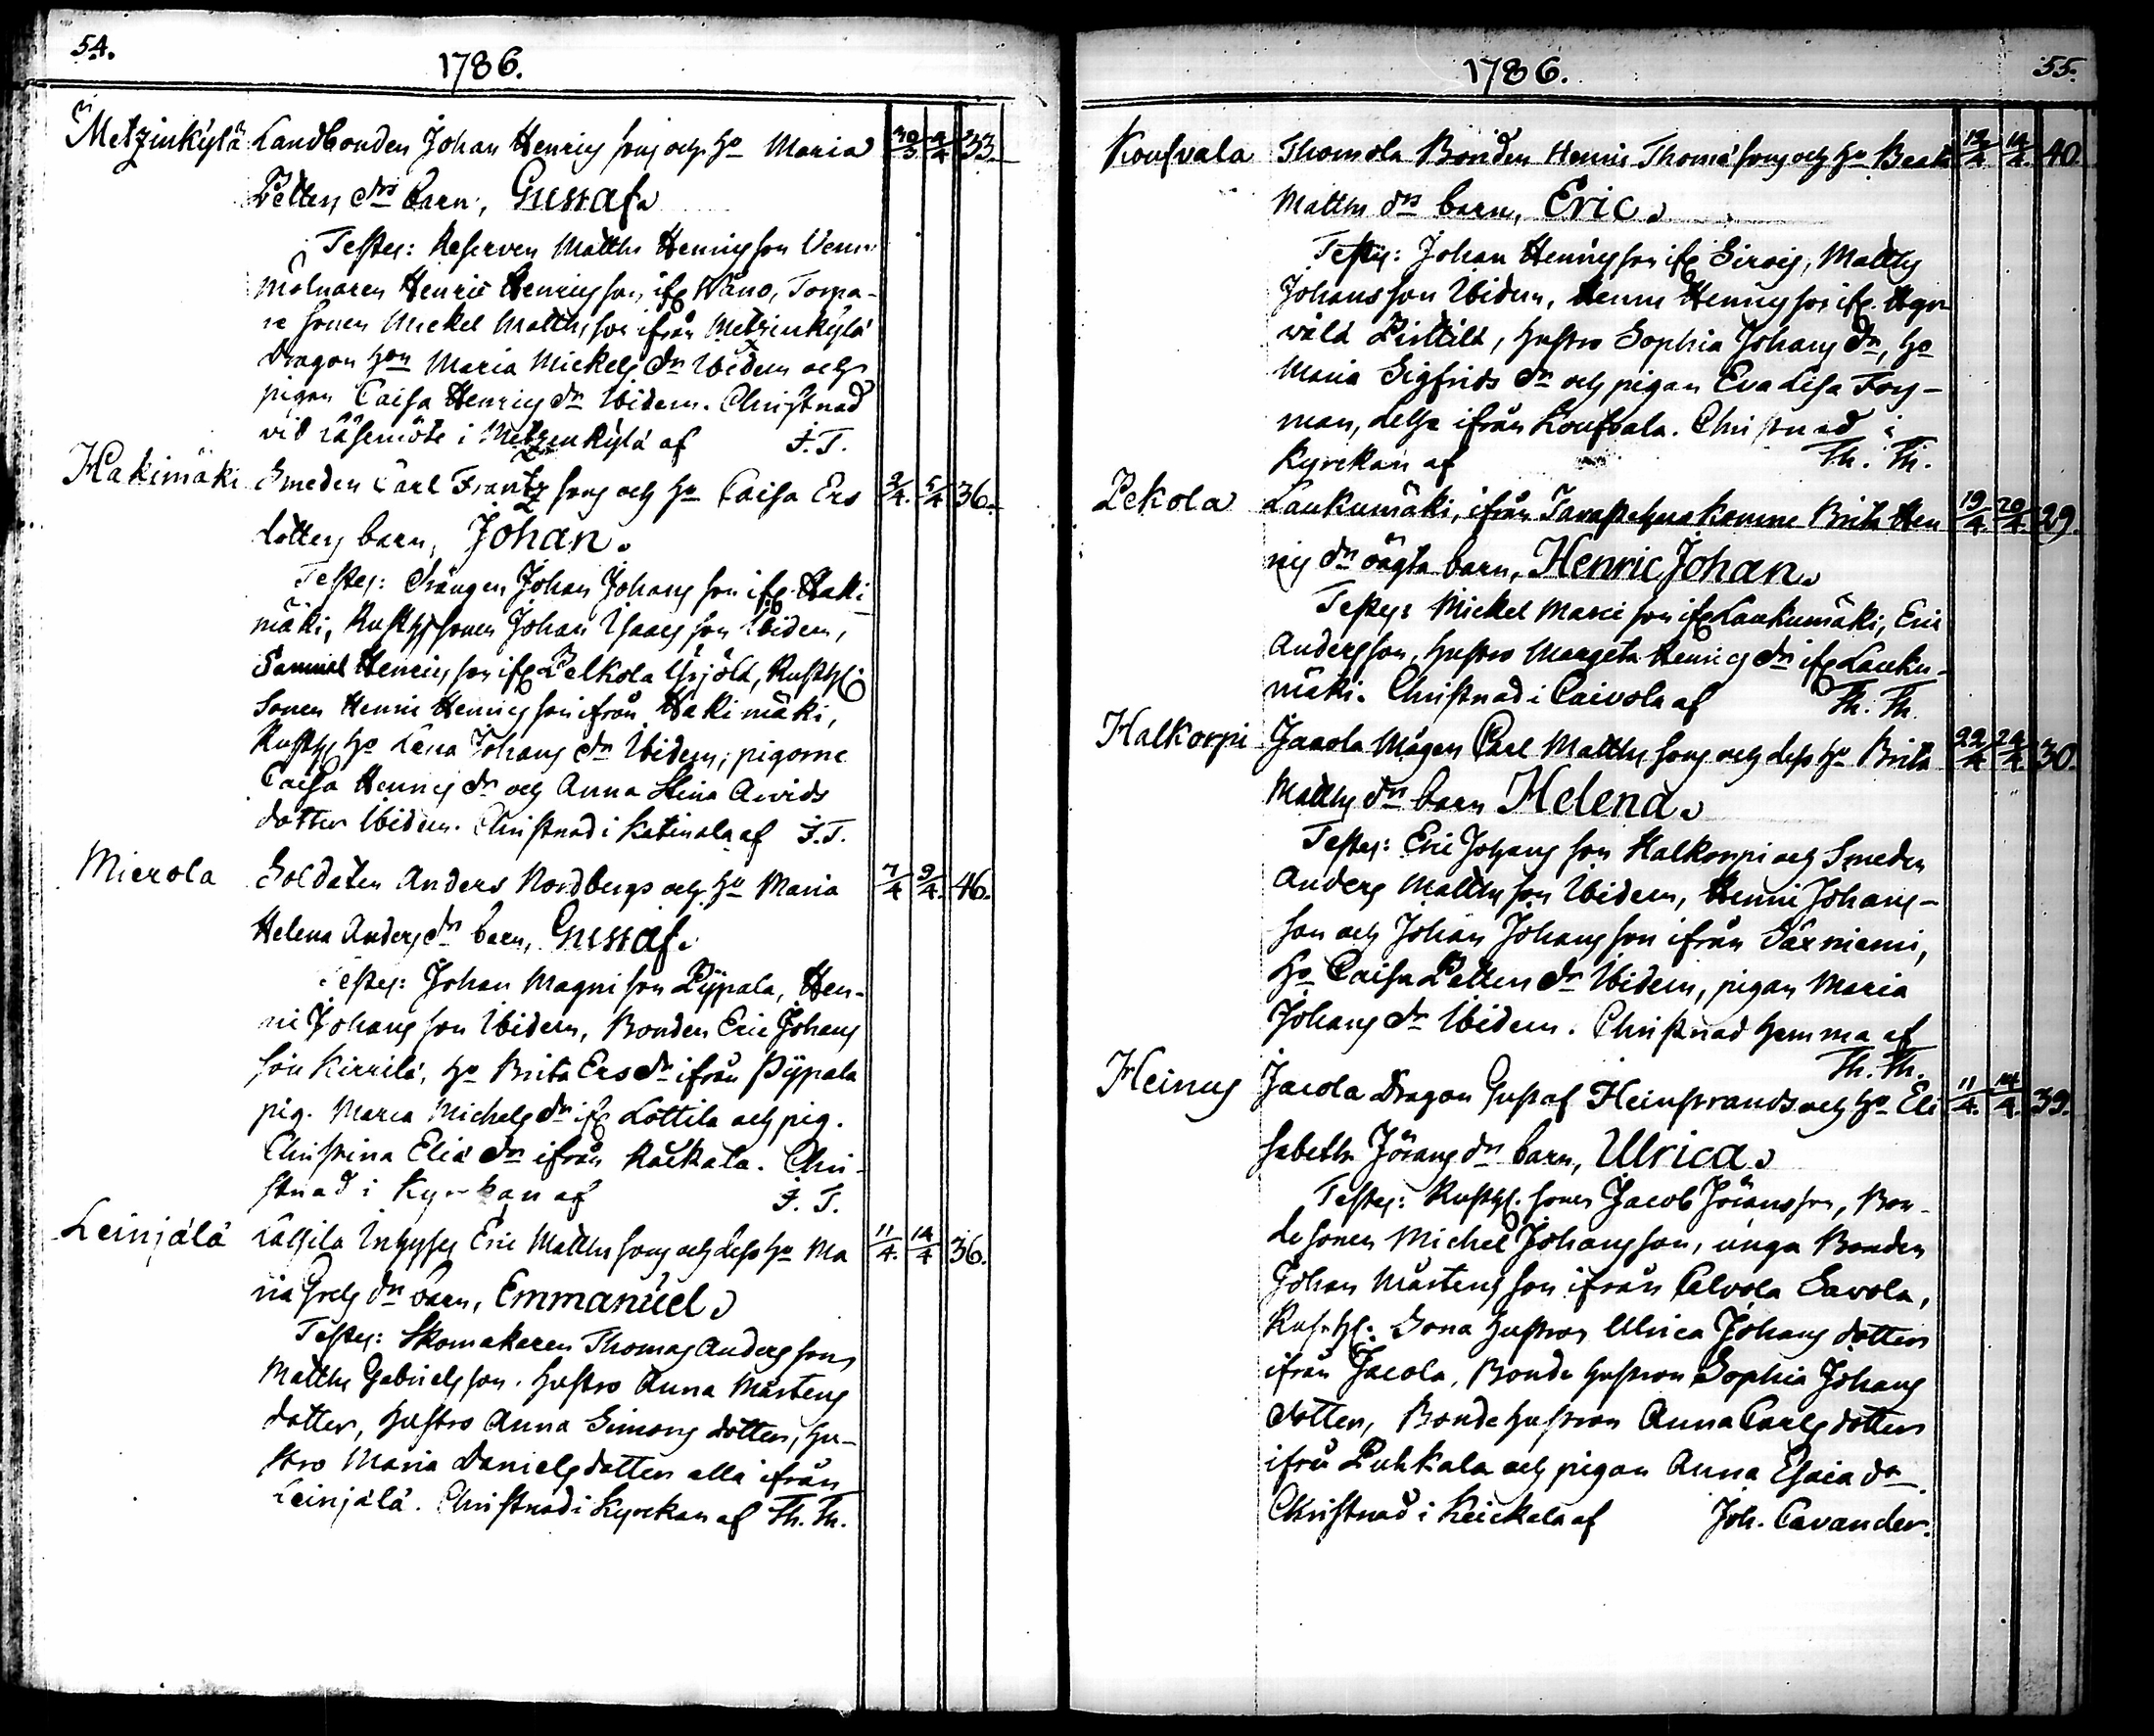 54.
1786.
Metzinkylä Landbonden Johan Henrics sons och ho Maria 30/3 4/4 33.
Petters drs barn, Gustaf.
Testes: Reserven Matths Henricsson
mölnaren Henric Henricsson ifr Wäno, Torpa-
re sonen Mickel Matthsson ifrån Metzinkylä
Dragon hon Maria Mickels dr Ibidem och
pigan Caisa Henrics dr Ibidem. Christnad
vid Läsemöte i Metzenkylä af J. T.
Hakimäki Smeden Carl Frantz sons och ho Caisa Ers 3/4. 5/4 36.
dotters barn, Johan.
Testes: Drängen Johan Johans son ifr Haki
mäki, Rusth sonen Johan Isaacs son Ibidem,
Samuel Henrics son ifr Pelkola Yrjölä, Rusth:
Sonen Henric Henrics son ifrån Hakimäki,
Rusth ho Lena Johans dr Ibidem, pigorne
Caisa Henrics dr och Anna Stina Arvids
dotter Ibidem. Christnad i Katinala af J. T.
Mierola Soldaten Anders Nordbergs och ho Maria 7/4 9/4. 46.
Helena Anders dr barn, Gustaf.
Testes: Johan Magni son Pÿpala, Hen-
ric Johans son Ibidem, Bonden Eric Johans
son Kirrilä, ho Brita Ers dr ifrån Pÿpala
pig. Maria Michels dr ifr Lottila och pig.
Christina Eliæ dr ifrån Räikälä. Chri-
stnad i Kyrckan af J. T.
Leinjälä Lassila Inhyses Eric Matths sons och dess ho Ma 11/4. 14/4 36.
ria Grels drs barn, Emmanuel.
Testes: Skomakaren Thomas Anders son,
Matths Gabriels son. hustro Anna Mårtens
dotter, hustro Anna Simons dotter, hu-
stro Maria Daniels dotter alla ifrån
Leinjälä. Christnad i Kyrckan af Th. Th.
1786. 55.
Koufvala Thomola Bonden Henric Thomæ sons och ho Beata 12/4 14/4. 40
Matths drs barn, Eric.
Testes: Johan Henrics son ifr Sirois, Matths
Johans son Ibidem, Henric Henrics son ifr.
Pirttilä, hustro Sophia Johans dr, ho
Maria Sigfrids dr och pigan Eva Lisa Fors-
man, desse ifrån Koufvala. Christnad i
Kyrckan af Th. Th.
Pekola Laukumäki, ifrån Tavastehus komne Brita Hen 19/4. 20/4. 29.
rics drs oägta barn, Henric Johan.
Testes: Mickel Marci son ifr Laukumäki, Eric
Anders son, hustro Margeta Henrics dr ifr Lauku-
mäki. Christnad i Caivola af Th. Th.
Halkorpi Jaaola Mågen Carl Matths sons och dess ho Brita 22/4 24/4. 30.
Matths drs barn Helena.
Testes: Eric Johans son Halkorpi och Smeden
Anders Matths son Ibidem, Henric Johans-
son och Johan Johans son ifrån Säxniemi,
ho Caisa Petters dr Ibidem, pigan Maria
Johans dr Ibidem. Christnad hemma af
Th. Th.
Heinus Jacola Dragon Gustaf Heinstrands och ho Eli 11/4. 14/4. 39.
sabeth Jörans drs barn, Ulrica.
Testes: Rusth. sonen Jacob Jöransson, Bon-
de sonen Michel Johans son, unga Bonden
Johan Mårtens son ifrån Calvola Savola,
Rusth: Sona hustron Ulrica Johans dotter
ifrån Jacola, Bonde hustron Sophia Johans
dotter, Bonde hustron Anna Carls dotter
ifrån Puhkala och pigan Anna Esaia dr.
Christnad i Keickala af Joh. Cavander.